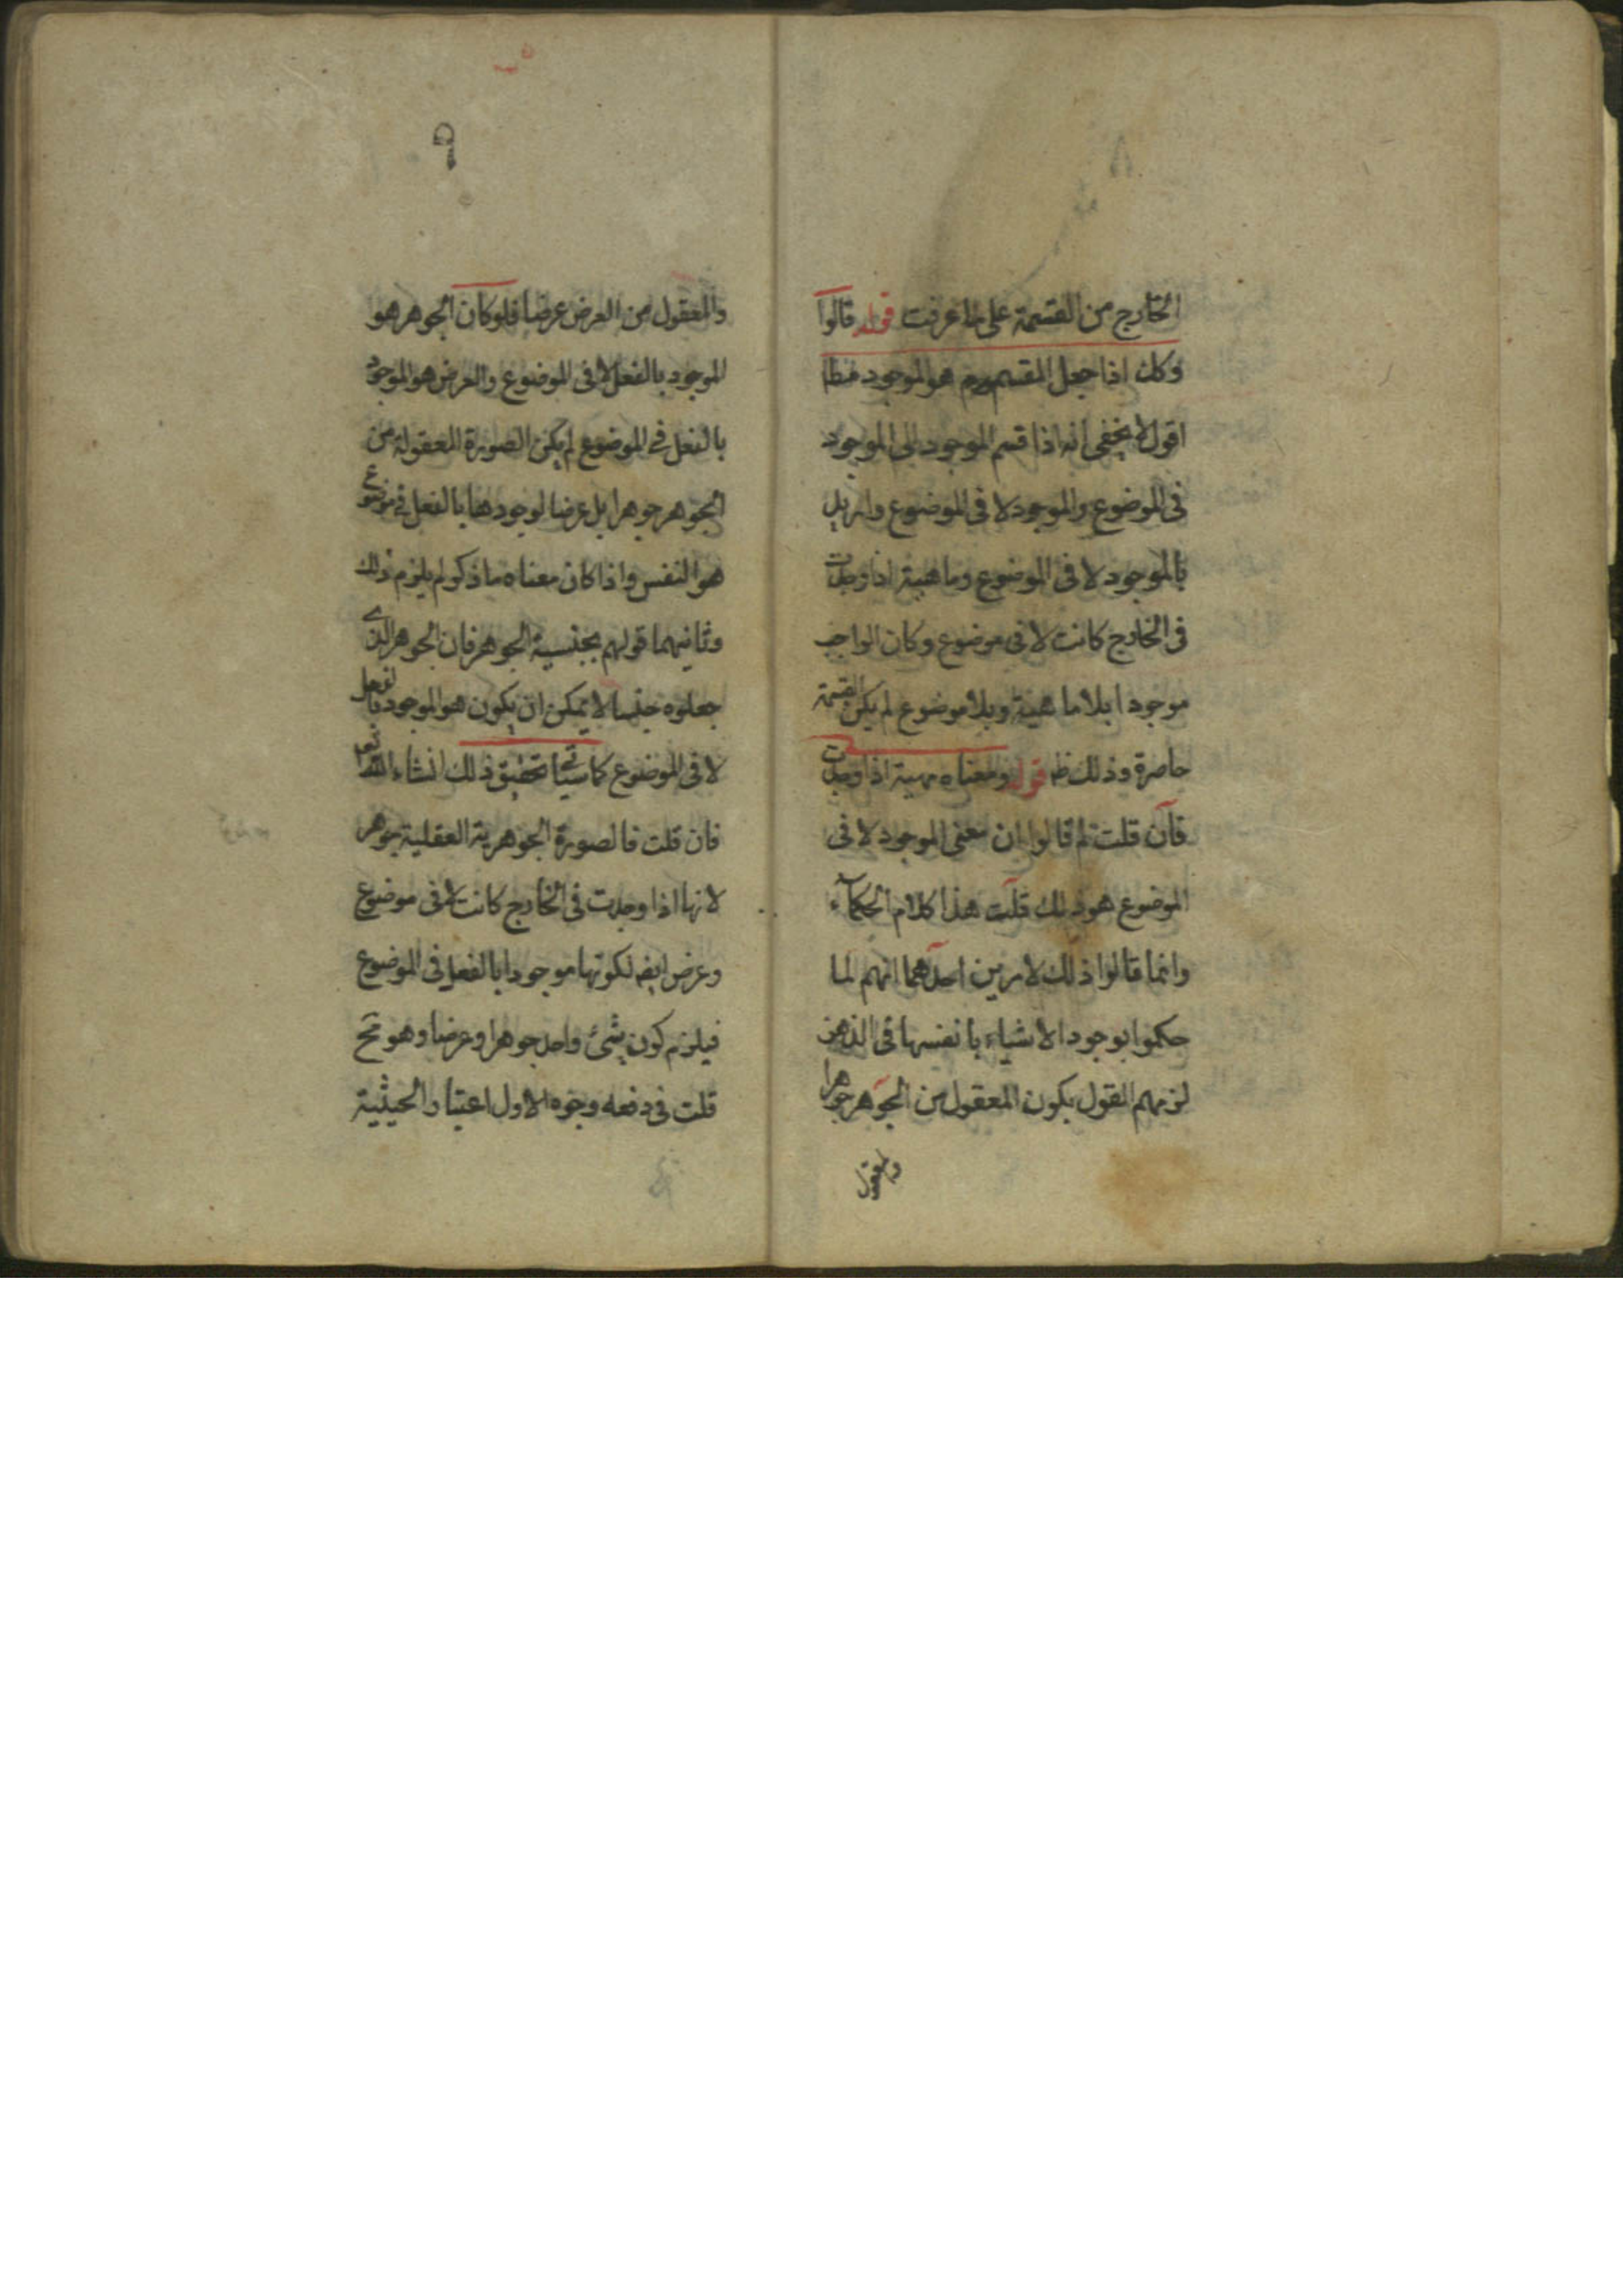 الخارج من القسمة على ما عرفت قوله قالوا
وكك اذا جعل المقسم هو الموجود مط
اقول لا يخفى انه اذا قسم الموجود الى الموجود
فى الموضوع والموجود لا فى الموضوع واريد
بالموجود لا فى الموضوع وماهية اذا وجدت
فى الخارج كانت لا فى موضوع وكان الواجب
موجودا بلا ماهية وبلا موضوع لم يكن القسمة
حاصرة وذلك ظ قوله ومعناه مهية اذا وجدت
فان قلت لم قالوا ان معنى الموجود لا فى
الموضوع هو ذلك قلت هذا كلام الحكماء
وانما قالوا ذلك لامرين احدهما انهم لما
حكموا بوجود الاشياء بانفسها فى الذهن
لزمهم القول بكون المعقول من الجوهر جوهرا
والمعقول
٩
والمعقول من العرض عرضا فلو كان الجوهر هو
الموجود بالفعل لا فى الموضوع والعرض هو الموجود
بالفعل فى الموضوع لم يكن الصورة المعقولة من
الجوهر جوهرا بل عرضا لوجودها بالفعل فى موضوع
هو النفس واذا كان معناه ما ذكر لم يلزم ذلك
وثانيهما قولهم بجنسية الجوهر فان الجوهر الذى
جعلوه جنسا لا يمكن ان يكون هو الموجود بالفعل
لا فى الموضوع كما سيأتى تحقيق ذلك انشاء الله تعا
فان قلت فالصورة الجوهرية العقلية جوهر
لانها اذا وجدت فى الخارج كانت لا فى موضوع
وعرض ايضه لكونها موجودا بالفعل فى الموضوع
فيلزم كون شئ واحد جوهرا وعرضا وهو مح
قلت فى دفعه وجوه الاول اعتبار الحيثية